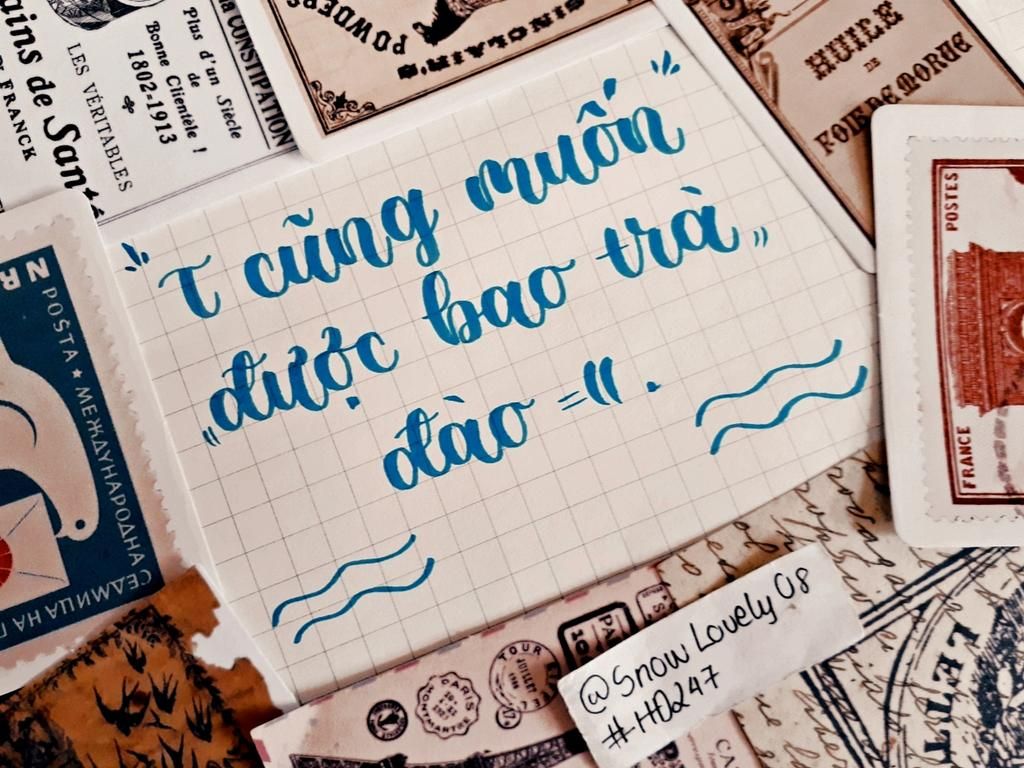 la CONSTIPATION
Plus d'un Siècle
Bonne Clientèle !
1802-1913
LES VÉRITABLES
ains de Santé
FRANCK
SINCLAIR'S
POWDERS
HUILE
DE
FOIE DE MORUE
τ cũng muốn
được bao trà
đào =(( .
POSTES
FRANCE
N
POSTA ★ МЕЖДУНАРОДНА
СЕДМИЦА НА П
PARIS
TOUR
JUILLET
@SnowLovely08
#HD247
LETT